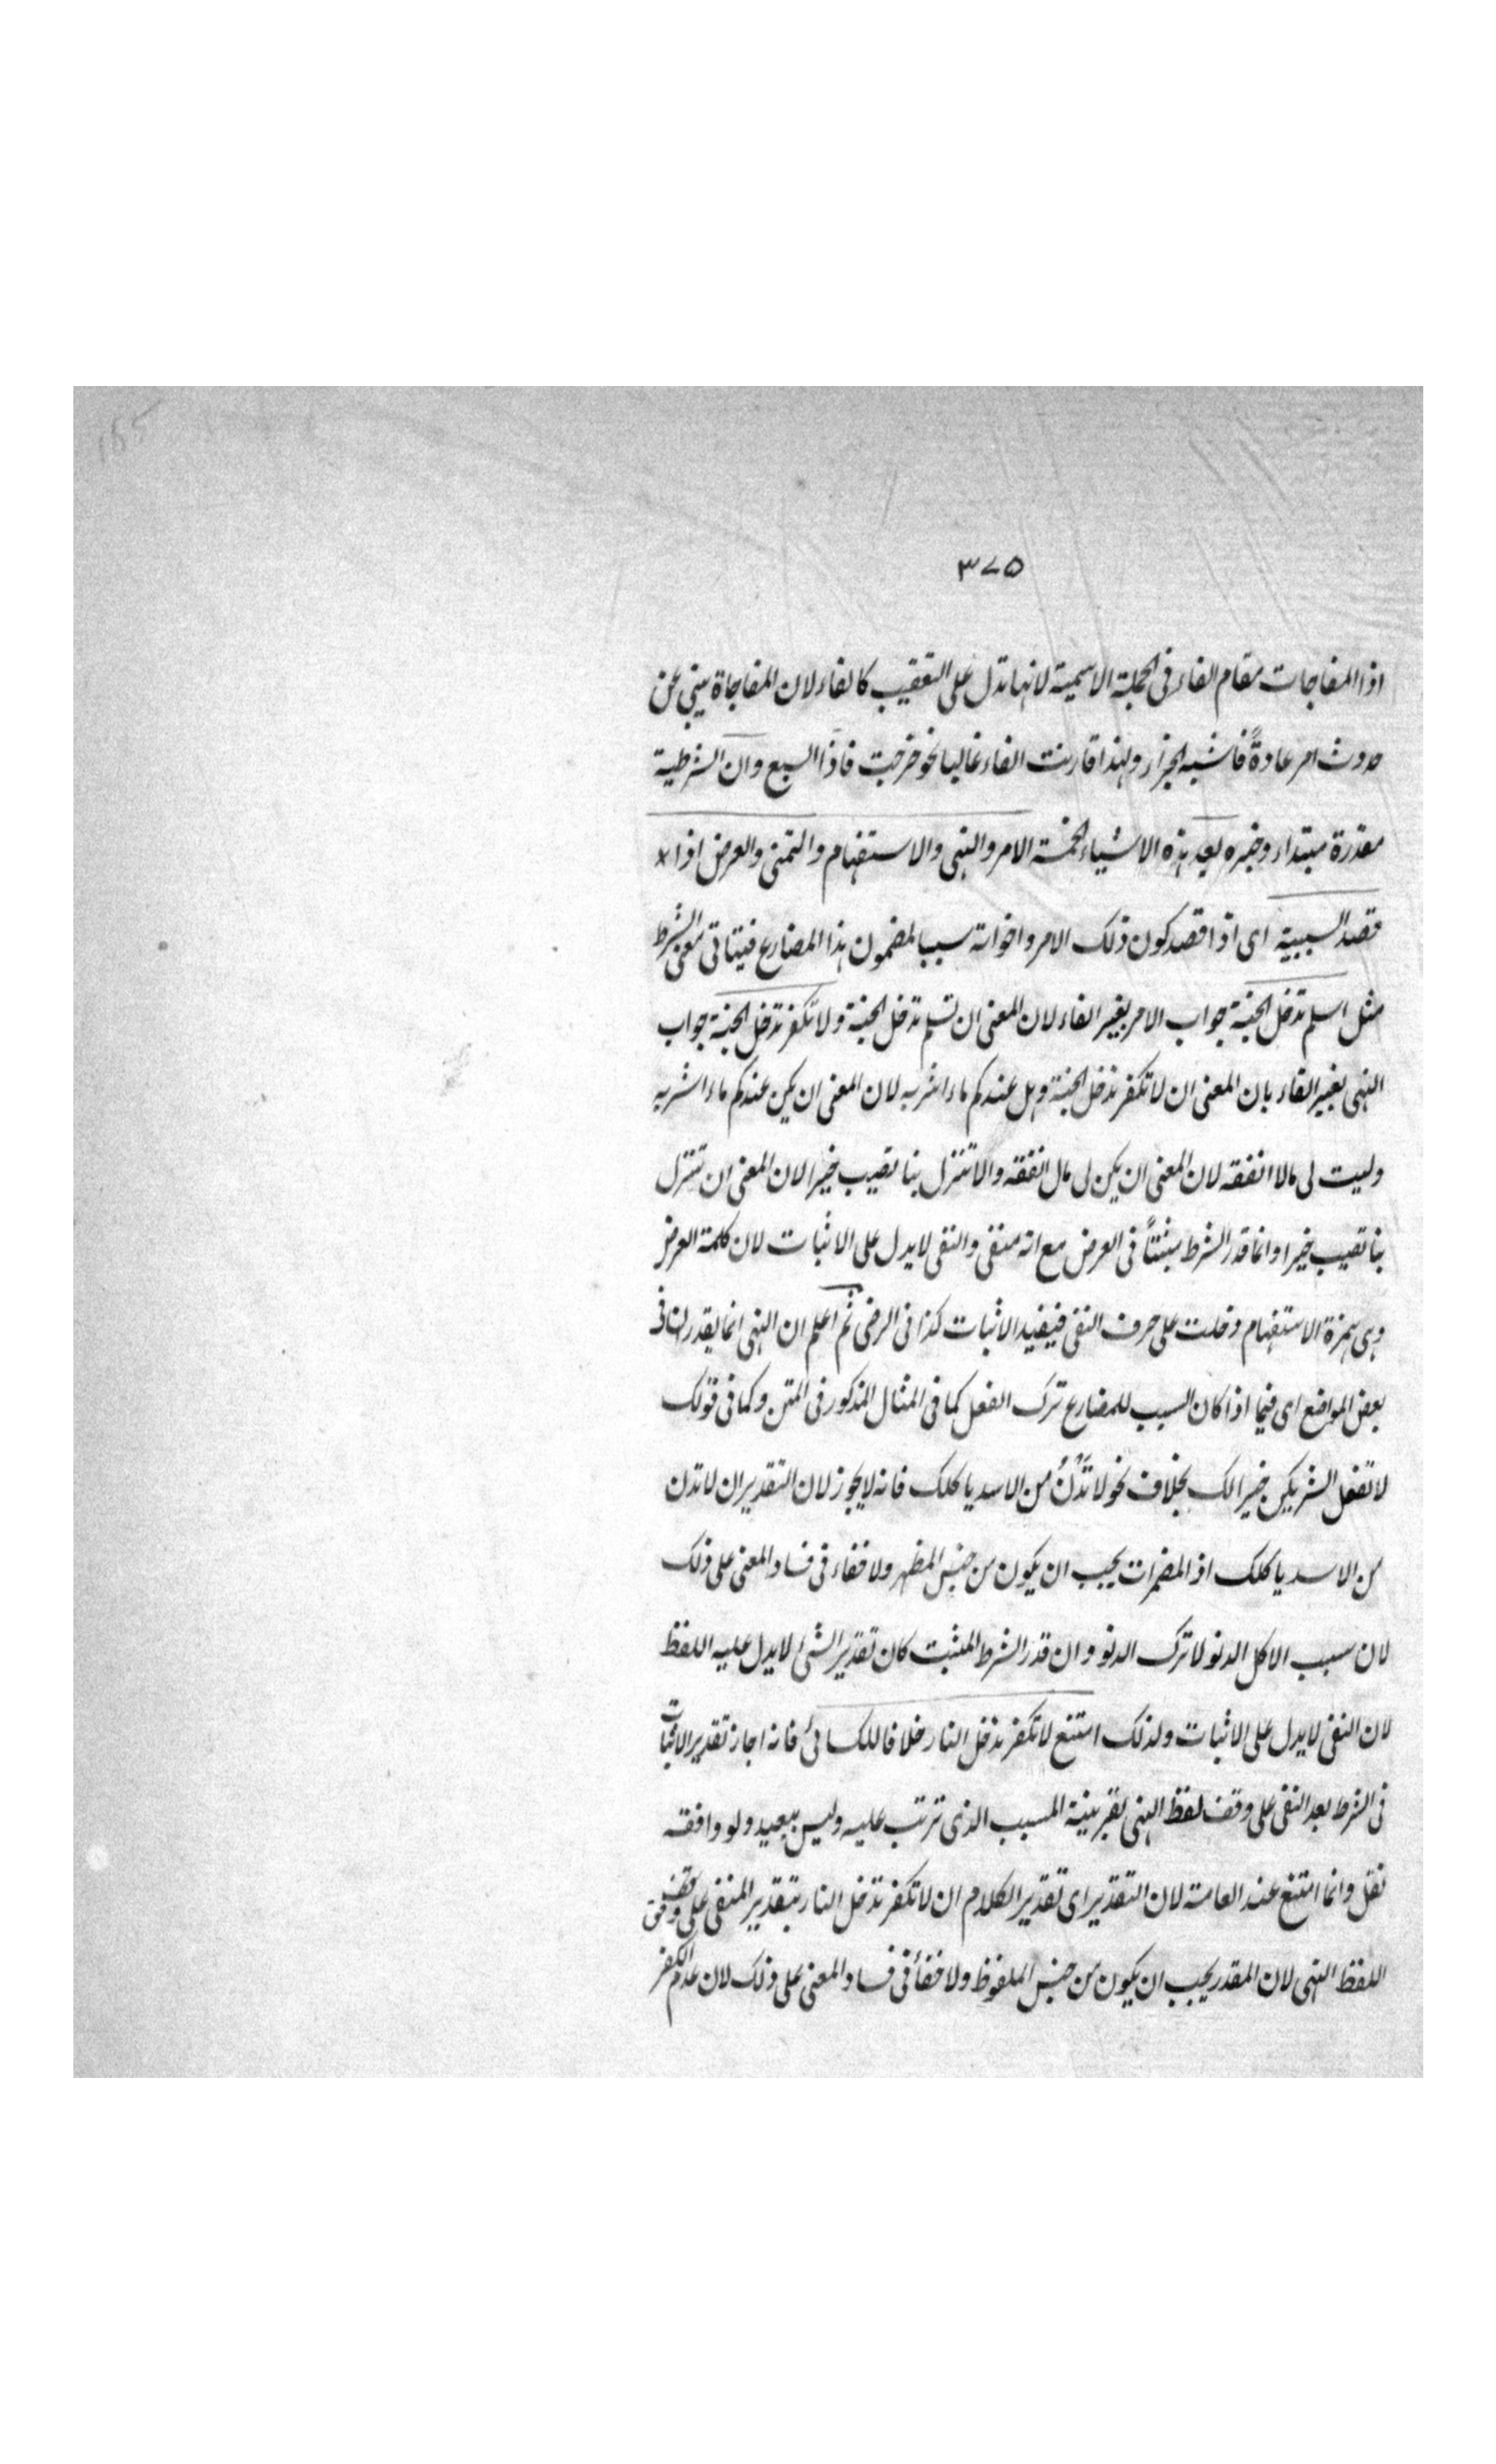 ٣٧٥
اذا المفاجات مقام الفاء فى الجملة الاسمية لانها تدل على التعقيب كالفاء لان المفاجاة ينبى عن
حدوث امر عادةً فاشبه الجزاء ولهذا قارنت الفاء غالبا نحو خرجت فاذا السبع وان الشرطية
مقدرة مبتداء وخبره بعد هذه الاشياء الخمسة الامر والنهى والاستفهام والتمنى والعرض اذا
قصد السببية اى اذا قصد كون ذلك الامر واخواته سببا لمضمون هذا المضارع فيتاتى معنى الشرط
مثل اسلم تدخل الجنة جواب الامر بغير الفاء لان المعنى ان تسلم تدخل الجنة ولا تكفر تدخل الجنة جواب
النهى بغير الفاء بان المعنى ان لا تكفر تدخل الجنة وهل عندكم ماء اشربه لان المعنى ان يكن عندكم ماء اشربه
وليت لى مالا انفقه لان المعنى ان يكن لى مال انفقه والا تنزل بنا تصيب خيرا لان المعنى ان تنزل
بنا تصيب خيرا وانما قدر الشرط مثبتاً فى العرض مع انه منفى والنفى لا يدل على الاثبات لان كلمة العرض
وهى همزة الاستفهام دخلت على حرف النفى فيفيد الاثبات كذا فى الرضى ثم اعلم ان النهى انما يقدر ان فى
بعض المواضع اى فيما اذا كان السبب للمضارع ترك الفعل كما فى المثال المذكور فى المتن وكما فى قولك
لا تفعل الشر يكن خيرا لك بخلاف نحو لا تَدْنُ من الاسد ياكلك فانه لا يجوز لان التقدير ان لا تدن
من الاسد ياكلك اذ المضمرات يجب ان يكون من جنس المظهر ولا خفاء فى فساد المعنى على ذلك
لان سبب الاكل الدنو لا ترك الدنو وان قدر الشرط المثبت كان تقدير الشئ لا يدل عليه اللفظ
لان النفى لا يدل على الاثبات ولذلك امتنع لا تكفر تدخل النار خلافا للكسائى فانه اجاز تقدير الاثبات
فى الشرط بعد النفى على وقف لفظ النهى بقرينة المسبب الذى ترتب عليه وليس ببعيد ولو وافقه
نقل وانما امتنع عند العامة لان التقدير اى تقدير الكلام ان لا تكفر تدخل النار بتقدير المنفى على وفق
اللفظ النهى لان المقدر يجب ان يكون من جنس الملفوظ ولا خفأ فى فساد المعنى على ذلك لان عدم الكفر